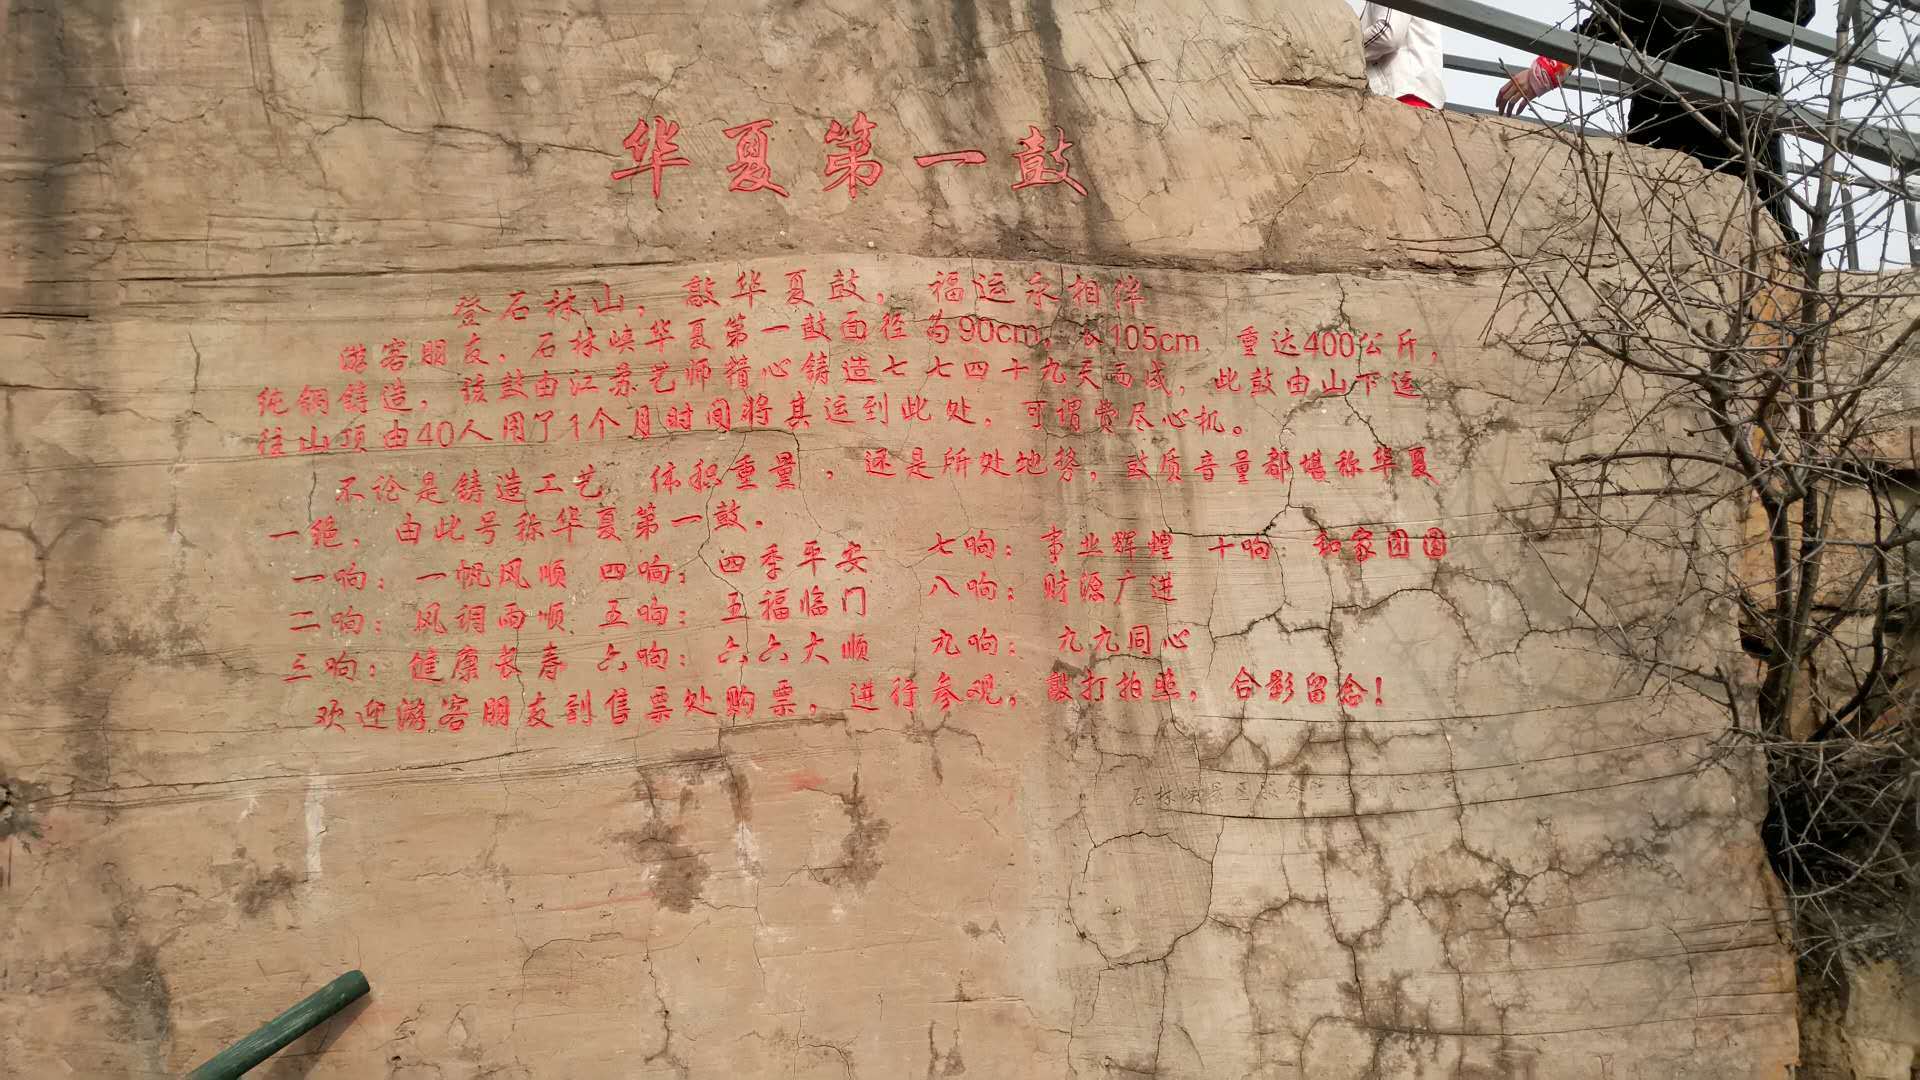 华夏第一鼓
登石林山，敲华夏鼓，福运永相伴
游客朋友，石林峡华夏第一鼓面径为90cm，长105cm 重达400公斤，
纯铜铸造，该鼓由江苏艺师精心铸造七七四十九天而成，此鼓由山下运
往山顶由40人用了1个月时间将其运到此处，可谓费尽心机。
不论是铸造工艺 体积重量，还是所处地势，鼓质音量都堪称华夏
一绝，由此号称华夏第一鼓.
一响：一帆风顺 四响：四季平安 七响：事业辉煌 十响：和家团圆
二响：风调雨顺 五响：五福临门 八响：财源广进
三响：健康长春 六响：六六大顺 九响：九九同心
欢迎游客朋友到售票处购票，进行参观，敲打拍照，合影留念！
石林峡景区